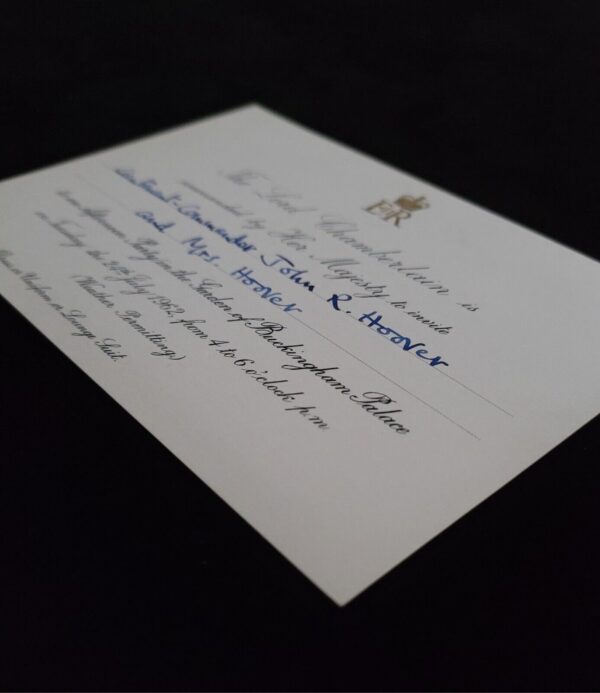 E II R
The Lord Chamberlain is
commanded by Her Majesty to invite
Lieutenant-Commander John R. Hoover
and Mrs. Hoover
to an Afternoon Party in the Garden of Buckingham Palace
on Tuesday the July from 4 to 6 o'clock p.m
(Weather Permitting)
Dress or Uniform or Lounge Suit.